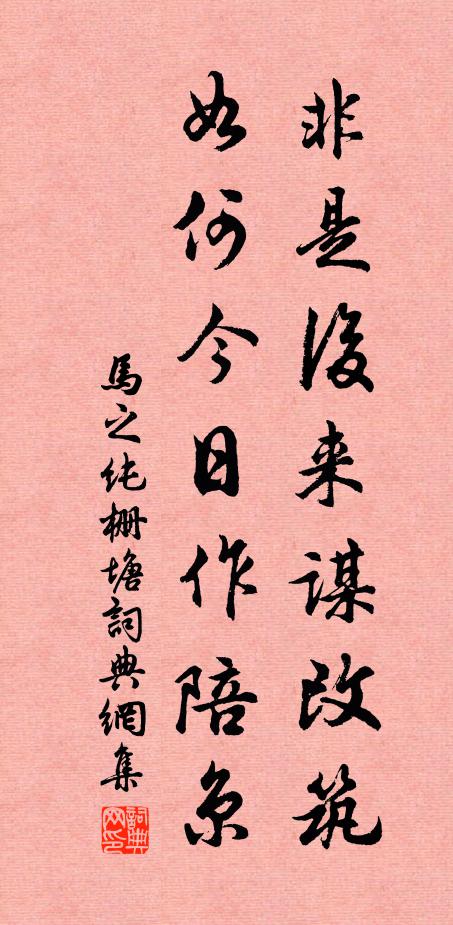 非是後来謀改筑
如何今日作陪京
馬之純栅塘詞典網集
詞典网印